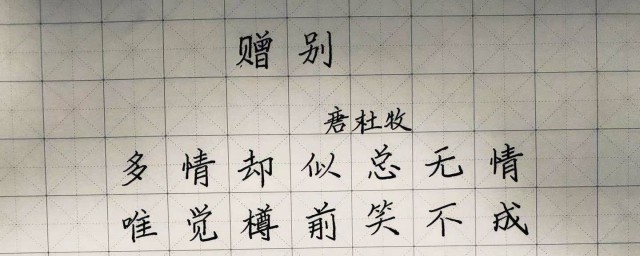 赠别
唐杜牧
多情却似总无情
唯觉樽前笑不成